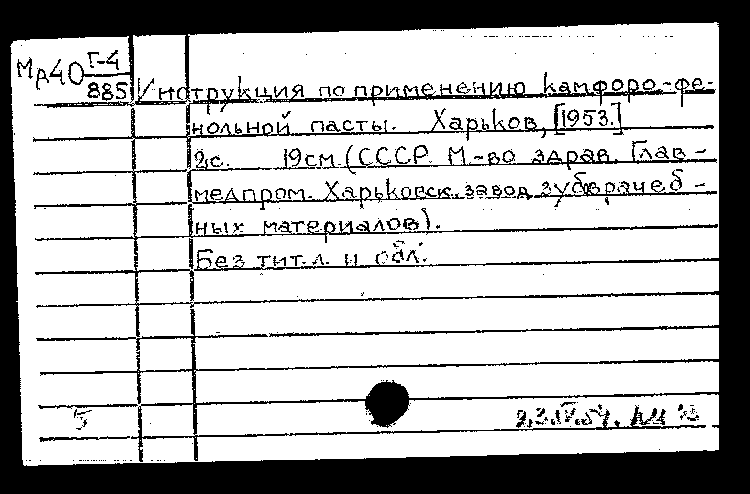 Мд40 Г-4
885 Инструкция по применению камфоро-фе-
нольной пасты. Харьков, [1953.]
2с. 19см. (СССР. М.-во здрав. Глав-
медпром. Харьковск. завод зубврачеб-
ных материалов).
Без тит. л. и обл.
5 23.IV.54.